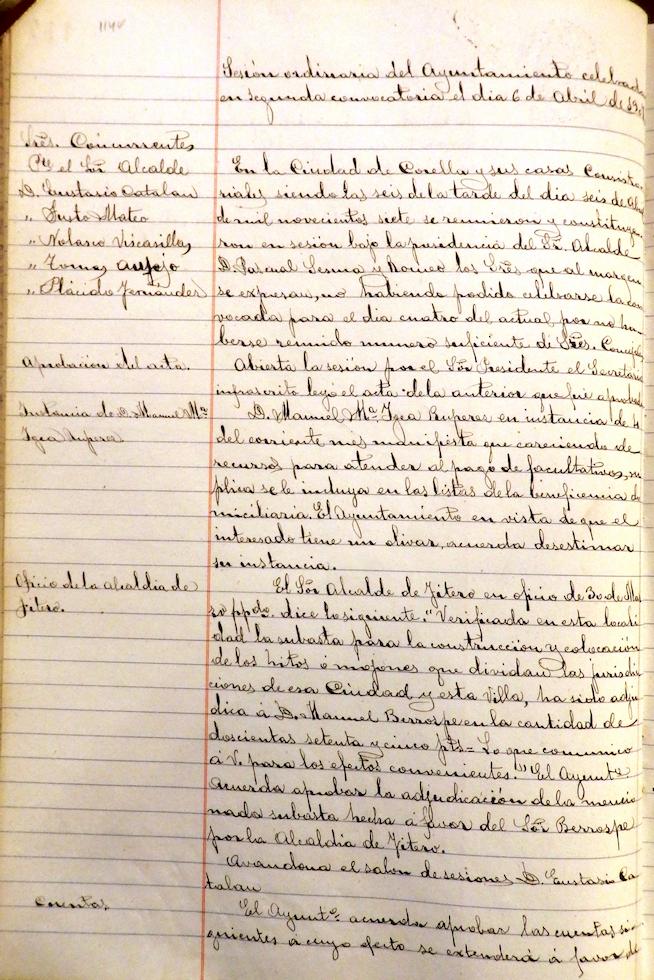 Sesión ordinaria del Ayuntamiento celebrada
en segunda convocatoria el dia 6 de Abril de 1907
Sres. Concurrentes
Pte el Sor Alcalde
D. Eustasio Catalan
" Justo Mateo
" Nolasco Viscasillas
" Tomas
" Plácido Fernández
En la Ciudad de Corella y sus casas Consisto-
riales siendo las seis de la tarde del dia seis de Abril
de mil novecientos siete se reunieron y constituye-
ron en sesión bajo la presidencia del Sr. Alcalde
D. Pascual Sesma y Romeo los Sres que al margen
se expresan, no habiendo podido celebrarse la con
vocada para el dia cuatro del actual por no ha
berse reunido numero suficiente de Sres. Concejales
Aprobacion del acta.
Abierta la sesión por el Sor Presidente el Secretario
infrascrito leyó el acta de la anterior que fué aprobada
Instancia de D. Manuel Mª
Igea Ruperez
D. Manuel Mª Igea Ruperez en instancia de 4
del corriente mes manifiesta que careciendo de
recursos para atender al pago de facultativos, su
plica se le incluya en las listas de la beneficencia do
miciliaria. El Ayuntamiento en vista de que el
interesado tiene un olivar, acuerda desestimar
su instancia.
Oficio de la Alcaldia de
Fitero.
El Sor Alcalde de Fitero en oficio de 30 de Mar
zo ppdo. dice lo siguiente. "Verificada en esta locali
dad la subasta para la construccion y colocación
de los hitos ó mojones que dividan las jurisdic
ciones de esa Ciudad y esta Villa, ha sido adju
dica á D. Manuel Berrospe en la cantidad de
doscientas setenta y cinco pts = Lo que comunico
á V. para los efectos convenientes." El Ayuntº
acuerda aprobar la adjudicación de la mencio
nada subasta hecha á favor del Sor Berrospe
por la Alcaldia de Fitero.
Abandona el salon de sesiones D. Eustasio Ca
talan
Cuentas
El Ayuntº. acuerda aprobar las cuentas si-
guientes á cuyo efecto se extenderá á favor de